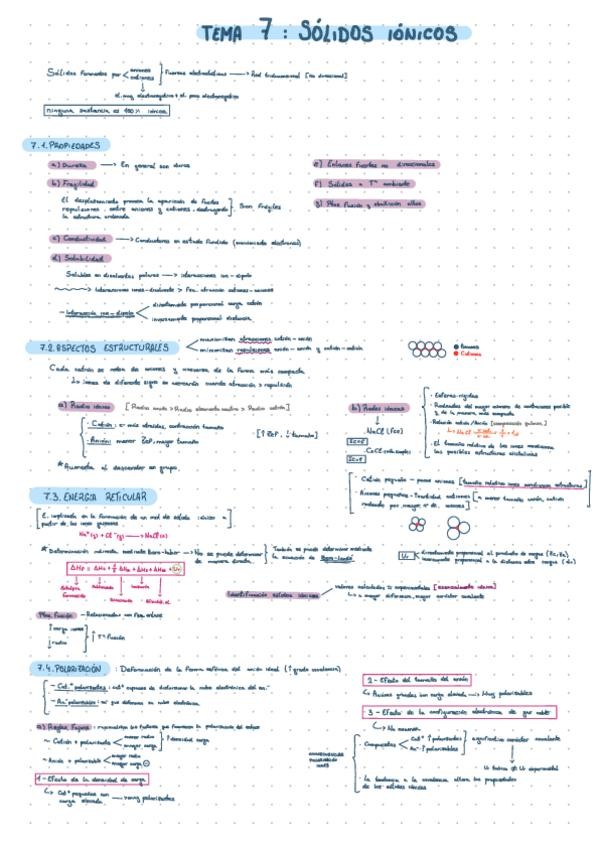 TEMA 7: SÓLIDOS IÓNICOS
Sólidos formados por aniones cationes Fuerzas electrostáticas → Red tridimensional [no direccional]
el. muy electronegativo + el. poco electronegativo
ninguna sustancia es 100% iónica
7.1. PROPIEDADES
a) Dureza → En general son duros
b) Fragilidad
El desplazamiento provoca la aparición de fuertes
repulsiones entre aniones y cationes, destruyendo
la estructura ordenada
Son frágiles
c) Conductividad → Conductores en estado fundido (movimiento electrones)
d) Solubilidad
Solubles en disolventes polares → interacciones ion-dipolo
Interacciones iones-disolvente > Fza. atracción cationes-aniones
- Interacción ion-dipolo
directamente proporcional carga catión
inversamente proporcional distancia
e) Enlaces fuertes no direccionales
f) Sólidos a Tª ambiente
g) Ptos fusión y ebullición altos
7.2. ASPECTOS ESTRUCTURALES
maximizan atracciones catión-anión
minimizan repulsiones anión-anión y catión-catión
Aniones
Cationes
Cada catión se rodea de aniones y viceversa de la forma más compacta
↳ iones de diferente signo se acercarán cuando atracción > repulsión
a) Radio iónico [Radio anión > Radio elemento neutro > Radio catión]
- Catión: e⁻ más atraídos, contracción tamaño
- Anión: menor Zef, mayor tamaño
[↑ Zef, ↓ tamaño]
* Aumenta al descender en grupo.
b) Redes iónicas
NaCl (fcc)
CsCl
- Esferas rígidas
- Rodeados del mayor número de contraiones posible
y de la manera más compacta
- Relación catión/anión [composición química]
- El tamaño relativo de los iones determina
las posibles estructuras cristalinas
- Catión pequeño - pocos aniones [tamaño relativo iones condiciona estructuras]
7.3. ENERGÍA RETICULAR
E. implicada en la formación de un mol de sólido iónico a
partir de los iones gaseosos
Na⁺(g) + Cl⁻(g) → NaCl(s)
* Determinación indirecta mediante Born-Haber → No se puede determinar
de manera directa
También se puede determinar mediante
la ecuación de Born-Landé
Ur
directamente proporcional al producto de cargas
inversamente proporcional a la distancia entre iones
Identificación sólidos iónicos
Valores calculados ≈ experimentales [esencialmente iónico]
↳ a mayor diferencia, mayor carácter covalente
Ptos. fusión - Relacionados con Fza. enlace
↑ carga iones
↓ radio
↑ Tª fusión
7.4. POLARIZACIÓN: Deformación de la forma esférica del anión ideal (↑ grado covalencia)
- Cat⁺ polarizantes: cat⁺ capaces de distorsionar la nube electrónica del an⁻
- An⁻ polarizables: an⁻ que deforman su nube electrónica
a) Reglas Fajans: racionalizan los factores que favorecen la polarización del enlace
- Catión + polarizante
menor radio
mayor carga
↑ densidad carga
- Anión + polarizable
mayor radio
mayor carga
1 - Efecto de la densidad de carga
↳ Cat⁺ pequeños con
carga elevada → muy polarizantes
2 - Efecto del tamaño del anión
↳ Aniones grandes con carga elevada → Muy polarizables
3 - Efecto de la configuración electrónica de gas noble
↳ No cumplen
CONSECUENCIAS
POLARIZACIÓN
IONES
- Compuestos
Cat⁺ ↑ polarizantes
An⁻ ↑ polarizables
significativo carácter covalente
Ur teórica ≠ Ur experimental
- la tendencia a la covalencia altera las propiedades
de los sólidos iónicos